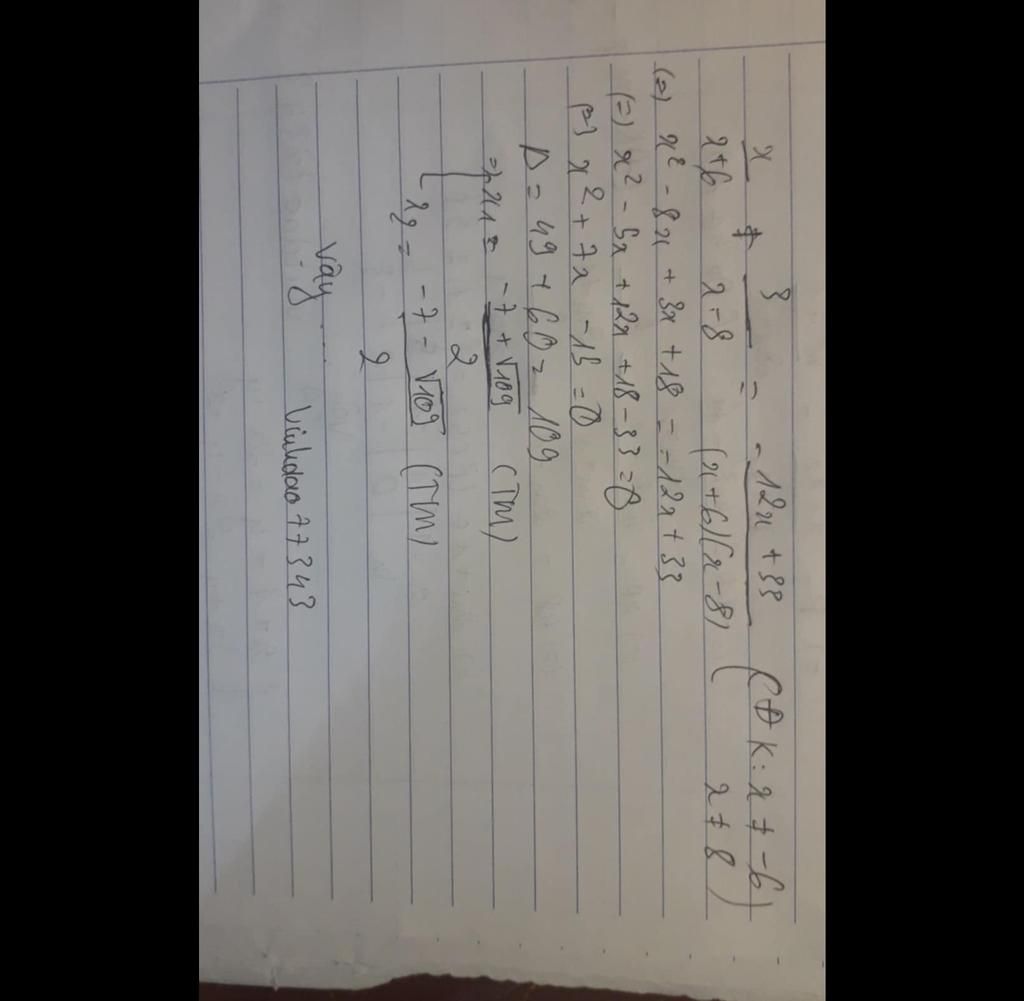 x/(x+6) + 3/(x-8) = (-12x+33)/((x+6)(x-8)) (ĐK: x ≠ -6
x ≠ 8)
(=) x² - 8x + 3x + 18 = -12x + 33
(=) x² - 5x + 12x + 18 - 33 = 0
(=) x² + 7x - 15 = 0
Δ = 49 + 60 = 109
=> [ x1 = (-7 + √109)/2 (TM)
x2 = (-7 - √109)/2 (TM)
Vậy ....
Vinhdao77343